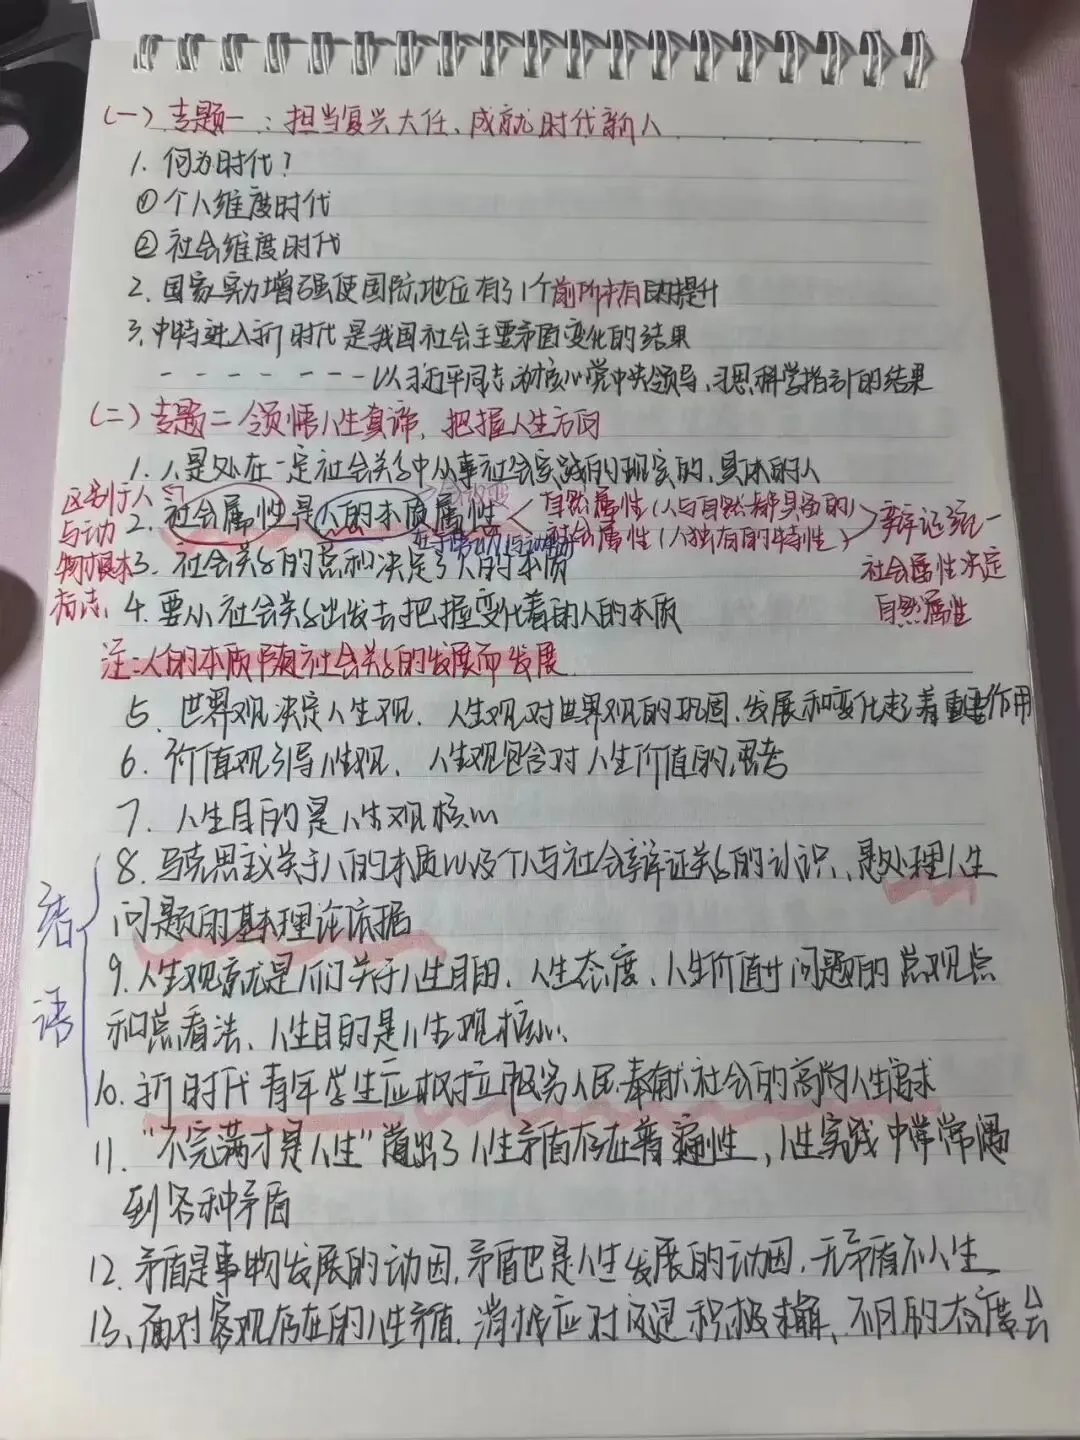 (一) 专题一：担当复兴大任、成就时代新人
1. 何为时代？
① 个人维度时代
② 社会维度时代
2. 国家实力增强使国际地位有了1个前所未有的提升
3. 中特进入新时代是我国社会主要矛盾变化的结果
- - - - - - - - 以习近平同志为核心党中央领导、习思科学指引的结果
(二) 专题二 领悟人生真谛，把握人生方向
1. 人是处在一定社会关系中从事社会实践的现实的、具体的人
区别于人与动物才根本标志、
2. 社会属性是人的本质属性 < 自然属性 (人与自然都具备的)
社会属性 (人独有的特性) > 辩证统一
社会属性决定
自然属性
3. 社会关系的总和决定了人的本质
4. 要从社会关系出发去把握变化着的人的本质
注：人的本质随社会关系的发展而发展
5. 世界观决定人生观、人生观对世界观的巩固、发展和变化起着重要作用
6. 价值观引导人生观、人生观包含对人生价值的思考
7. 人生目的是人生观核心
结语
8. 马克思主义关于人的本质以及个人与社会辩证关系的认识、是处理人生
问题的基本理论依据
9. 人生观就是人们关于人生目的、人生态度、人生价值等问题的总观点
和总看法、人生目的是人生观核心、
10. 新时代青年学生应树立服务人民、奉献社会的高尚人生追求
11. “不完满才是人生”道出了人生矛盾存在普遍性，人生实践中常常遇
到各种矛盾
12. 矛盾是事物发展的动因，矛盾也是人生发展的动因，无矛盾不人生
13、面对客观存在的人生矛盾，消极应对 还 积极求解、不同的态度会